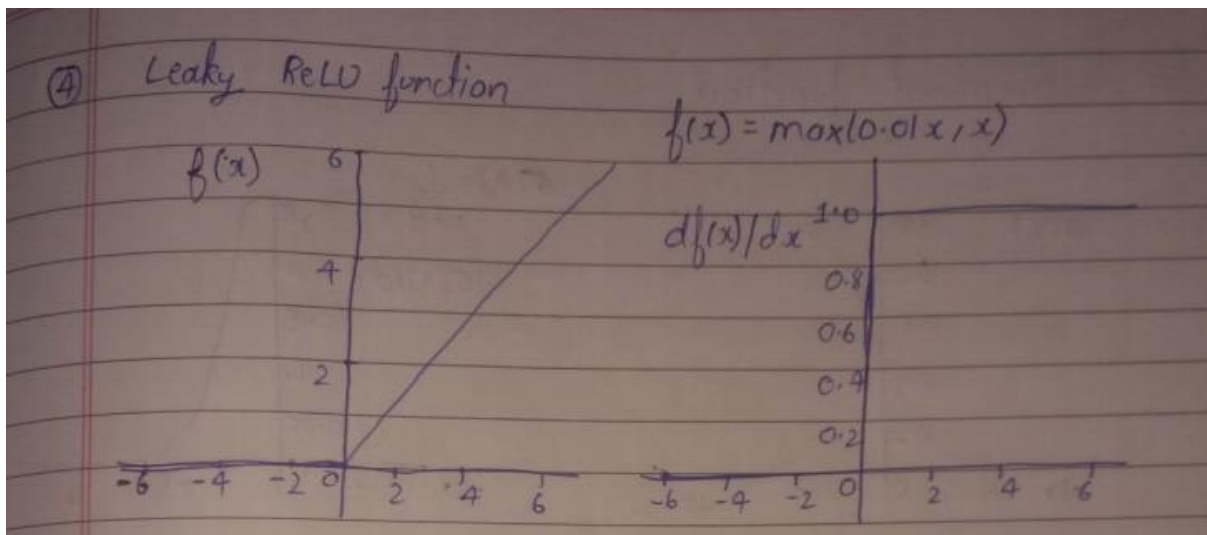 ④ Leaky ReLU function
f(x) = max(0.01x, x)
f(x)
6
4
2
-6 -4 -2 0 2 4 6
df(x)/dx
1.0
0.8
0.6
0.4
0.2
-6 -4 -2 0 2 4 6